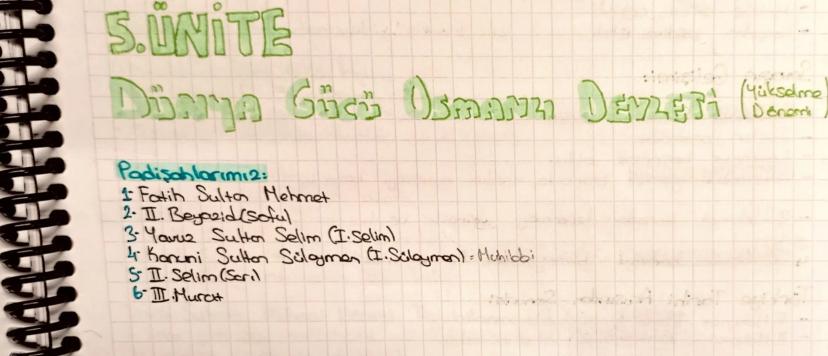 5.ÜNİTE
DÜNYA GÜCÜ OSMANLI DEVLETİ (Yükselme Dönemi)
Padişahlarımız:
1- Fatih Sultan Mehmet
2- II. Beyazid (Sofu)
3- Yavuz Sultan Selim (I. Selim)
4- Kanuni Sultan Süleyman (I. Süleyman) = Muhibbi
5- II. Selim (Sarı)
6- III. Murat